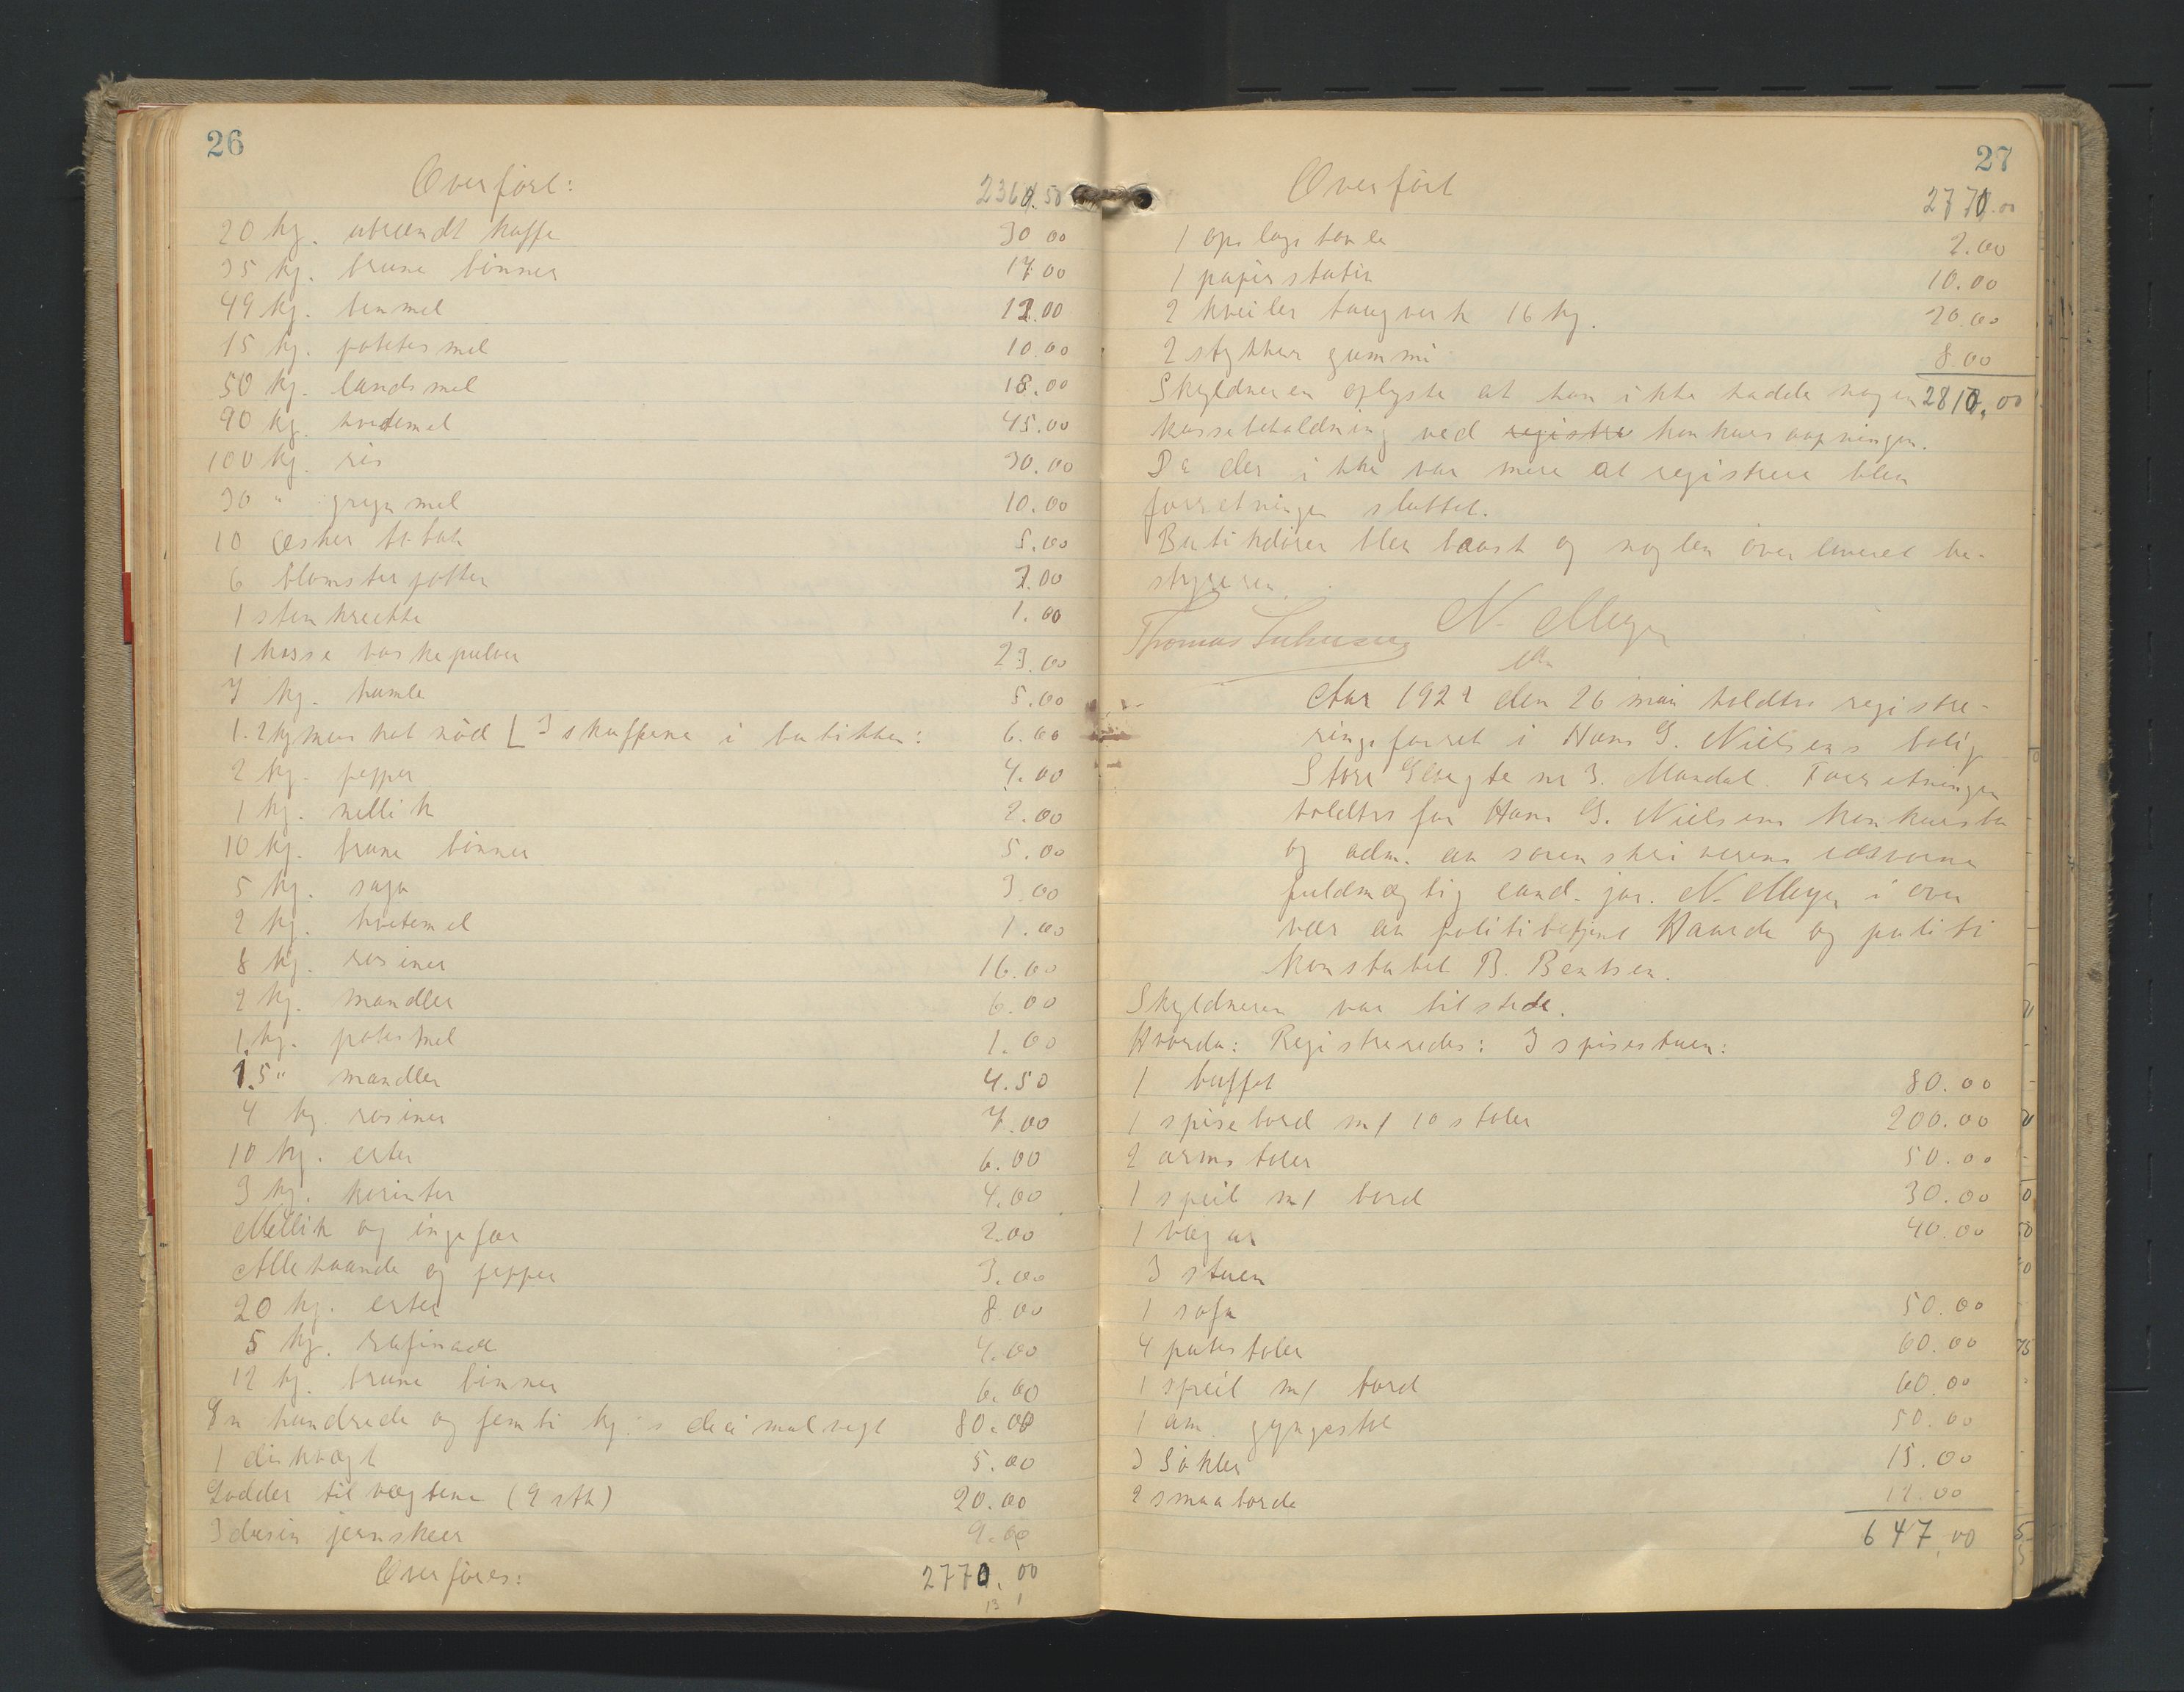 26
Overført: 2360.50
20 kg. ubrændt kaffe 30 00
35 kg. brune bønner 17 00
49 kg. benmel 12.00
15 kg. potetesmel 10.00
50 kg. landsmel 18.00
90 kg. hvedemel 45.00
100 kg. ris 30.00
30 " grynmel 10.00
10 æsker tobak 5.00
6 blomsterpotter 2.00
1 stenkrukke 1.00
1 kasse vaskepulver 23.00
7 kg. humle 5.00
1.2 kg muskatnød [I skuffene i butikken: 6.00
2 kg. pepper 4.00
1 kg. nellik 2.00
10 kg. brune bønner 5.00
5 kg. sago 3.00
2 kg. hvetemel 1.00
8 kg. rosiner 16.00
2 kg. mandler 6.00
1 kg. potetmel 1.00
1.5 " mandler 4.50
4 kg. rosiner 7.00
10 kg. erter 6.00
3 kg. korinter 4.00
Nellik og ingefær 2.00
Allehaande og pepper 3.00
20 kg. erter 8.00
5 kg. rafinade 4.00
12 kg. brune bønner 6.00
En hundrede og femti kg.s decimalvegt 80.00
1 diskvægt 5.00
Lodder til vægtene (9 stk) 20.00
3 dusin jernskeer 9.00
Overføres: 2770.00
13 1
27
Overført 2770.00
1 opslagstavle 2.00
1 papirstativ 10.00
2 kveiler taugverk 16 kg. 20.00
2 stykker gummi 8.00
Skyldneren oplyste at han ikke hadde nogen 2810.00
kassebeholdning ved registre konkursaapningen.
Da der ikke var mere at registrere blev
forretningen sluttet.
Butikdøren blev laast og nøglen overleveret be-
styreren.
Thomas N. Meyer
Aar 1922 den 26 mai holdtes registre-
ringsforret i Hans G. Nielsens bolig
Store Elvegte nr 3. Mandal. Forretningen
holdtes for Hans G. Nielsens konkursbo
og adm. av sorenskriverens edsvorne
fuldmægtig cand. jur. N. Meyer i over
vær av politibetjent Haarde og politi
konstabel B. Bentsen.
Skyldneren var tilstede.
Hvorda: Registreredes: I spisestuen:
1 buffet 80.00
1 spisebord m/ 10 stoler 200.00
2 armstoler 50.00
1 speil m/ bord 30.00
1 vægur 40.00
I stuen
1 sofa 50.00
4 puterstoler 60.00
1 speil m/ bord 60.00
1 am. gyngestol 50.00
3 Søkler 15.00
2 smaaborde 12.00
647.00